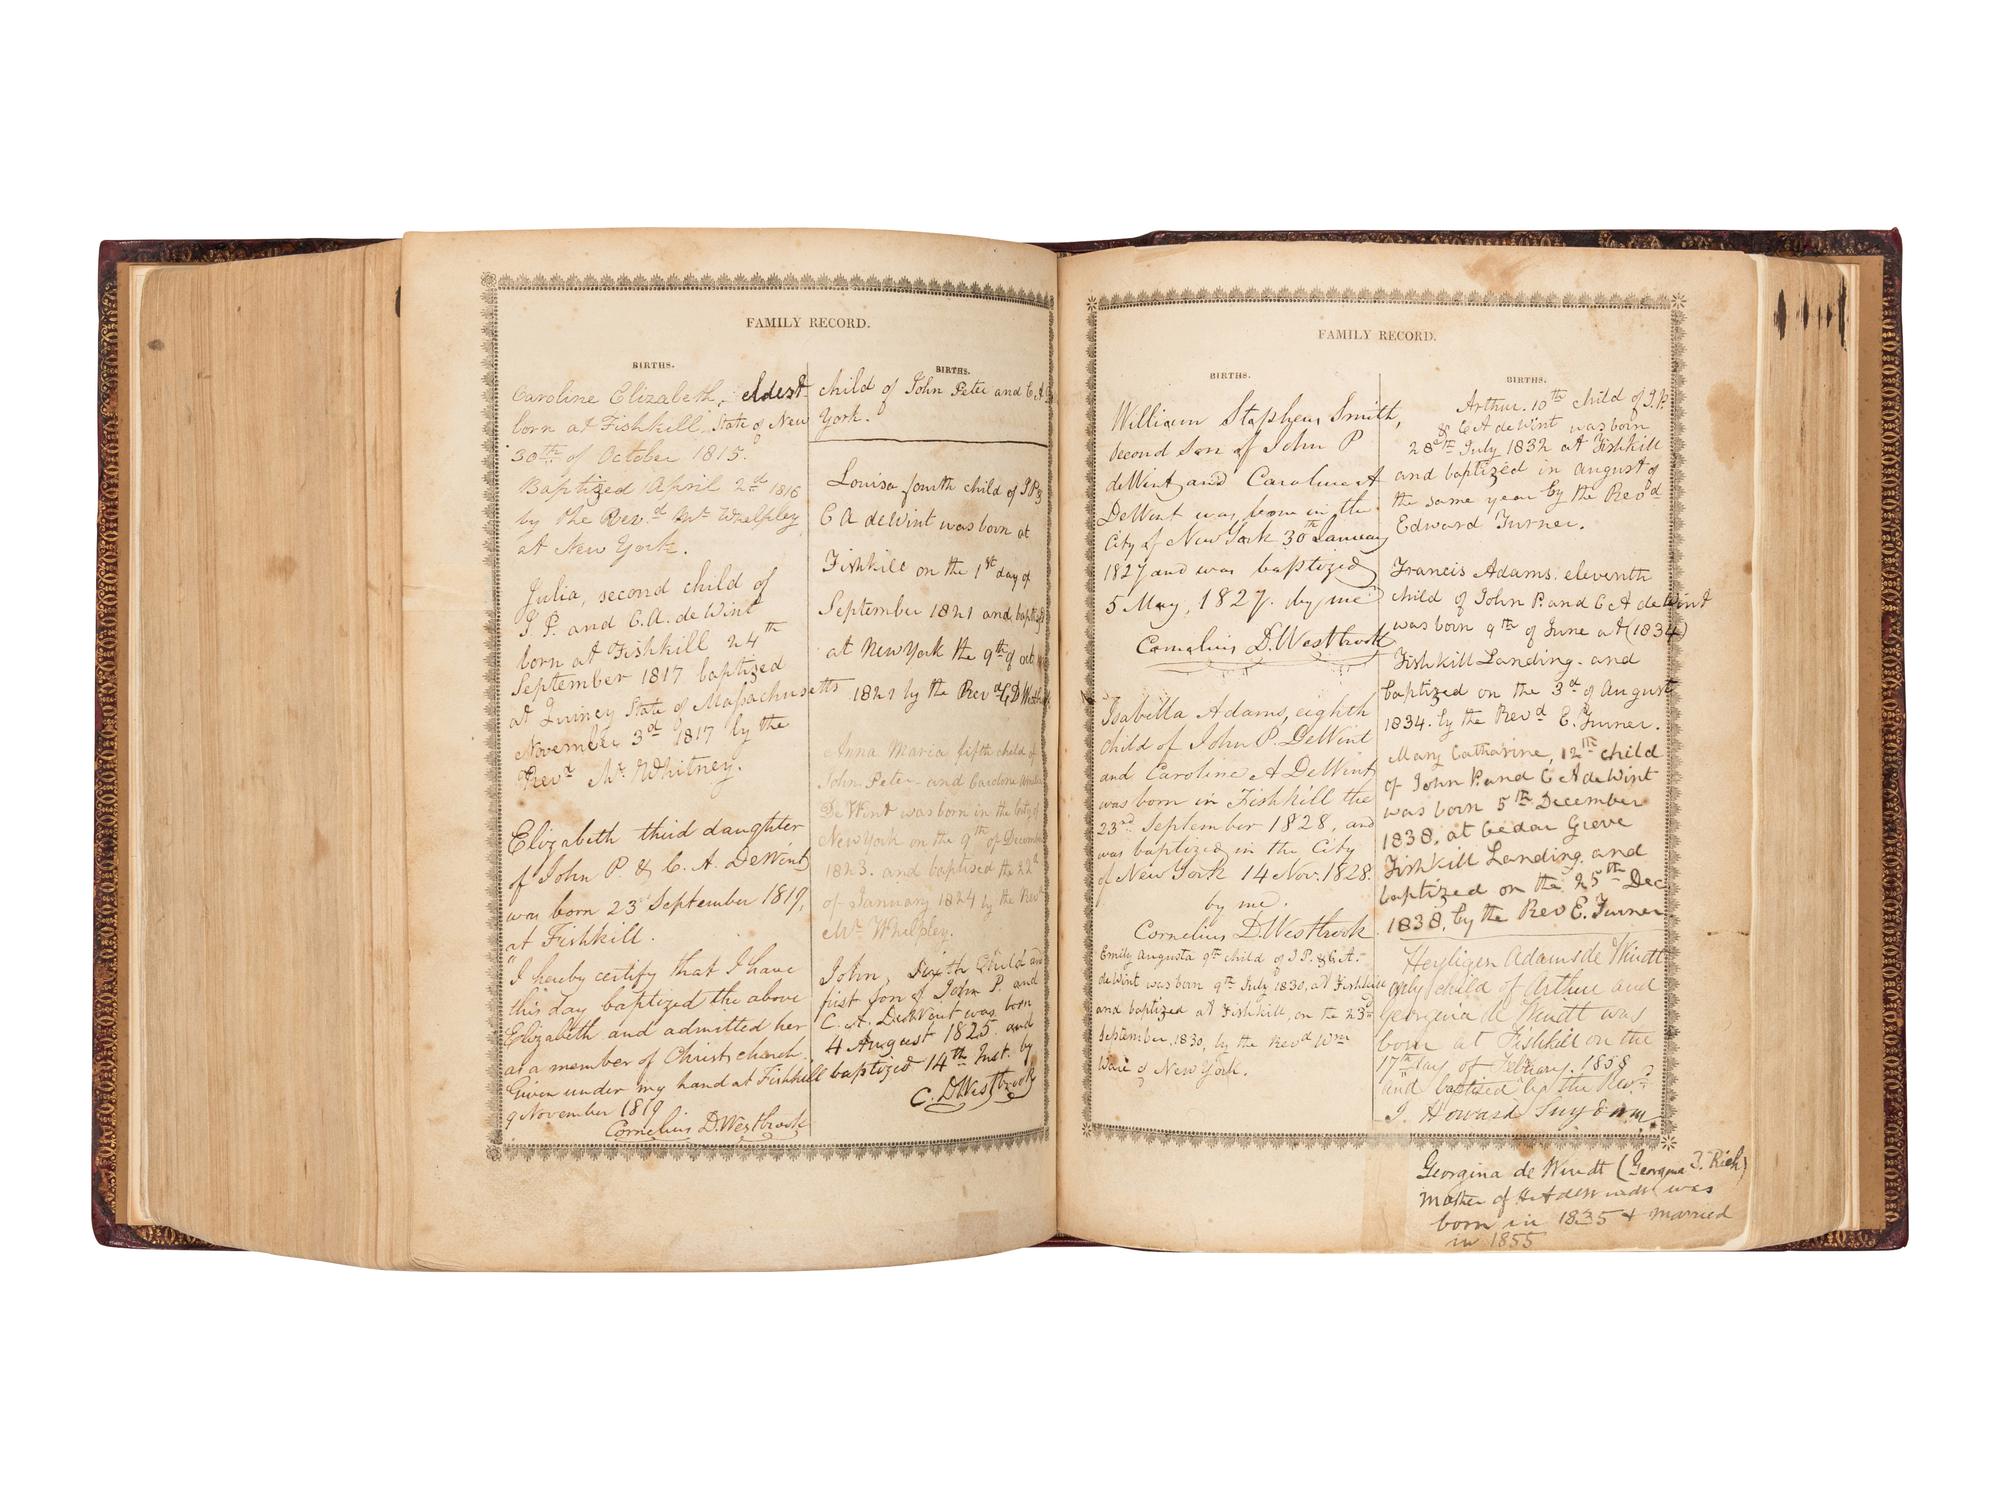 FAMILY RECORD.
BIRTHS.
Caroline Elizabeth, eldest child of John Peter and C. A.
born at Fishkill, State of New York.
30th of October 1815.
Baptized April 2d 1816
by the Rev.d Mr Whelpley
at New York.
Julia, second child of
J. P. and C. A. de Wint
born at Fishkill 24th
September 1817 baptized
at Quincy State of Massachusetts
November 3d 1817 by the
Revd Mr Whitney.
Elizabeth third daughter
of John P. & C. A. DeWint
was born 23 September 1819,
at Fishkill.
"I hereby certify that I have
this day baptized the above
Elizabeth and admitted her
as a member of Christs church.
Given under my hand at Fishkill
9 November 1819
Cornelius D Westbrook
BIRTHS.
Louisa fourth child of J P &
C A deWint was born at
Fishkill on the 1st day of
September 1821 and
at New York the 9th of oct
1821 by the Revd C D
Anna Maria fifth child of
John Peter and Caroline
De Wint was born in the City of
New York on the 9th of
1823. and baptised the 22d
of January 1824 by the Revd
Mr Whelpley.
John, Sixth Child and
first son of John P. and
C. A. DeWint was born
4 August 1825. and
baptized 14th Inst. by
C. D Westbrook
FAMILY RECORD.
BIRTHS.
William Stephens Smith,
second son of John P
deWint and Caroline A
DeWint was born in the
City of New York 30th January
1827 and was baptized
5 May, 1827. by me
Cornelius D. Westbrook
Isabella Adams, eighth
child of John P. DeWint
and Caroline A DeWint
was born in Fishkill the
23nd September 1828, and
was baptized in the City
of New York 14 Nov. 1828.
by me.
Cornelius D. Westbrook
Emily Augusta 9th child of J P. & C. A.
deWint was born 9th July 1830, at Fishkill
and baptized at Fishkill, on the 23d
September, 1830, by the Revd Wm
Ware of New York.
BIRTHS.
Arthur. 10th child of J. P.
& C A deWint was born
28th July 1832 at Fishkill
and baptized in august of
the same year by the Revd
Edward Turner.
Francis Adams. eleventh
child of John P. and C A deWint
was born 9th of June at (1834)
Fishkill Landing. and
baptized on the 3d of August
1834. by the Revd E. Turner.
Mary Catharine, 12th child
of John P. and C A deWint
was born 5th December
1838. at Cedar Grove
Fishkill Landing, and
baptized on the 25th Dec
1838, by the Rev E. Turner
Heyliger Adams de Windt
only child of Arthur and
Georgina de Windt was
born at Fishkill on the
17th day of February. 1858
and baptised by the Revd
J. Howard Suydam.
Georgina de Windt (Georgina Rich)
mother of H A deWindt was
born in 1835 & married
in 1855